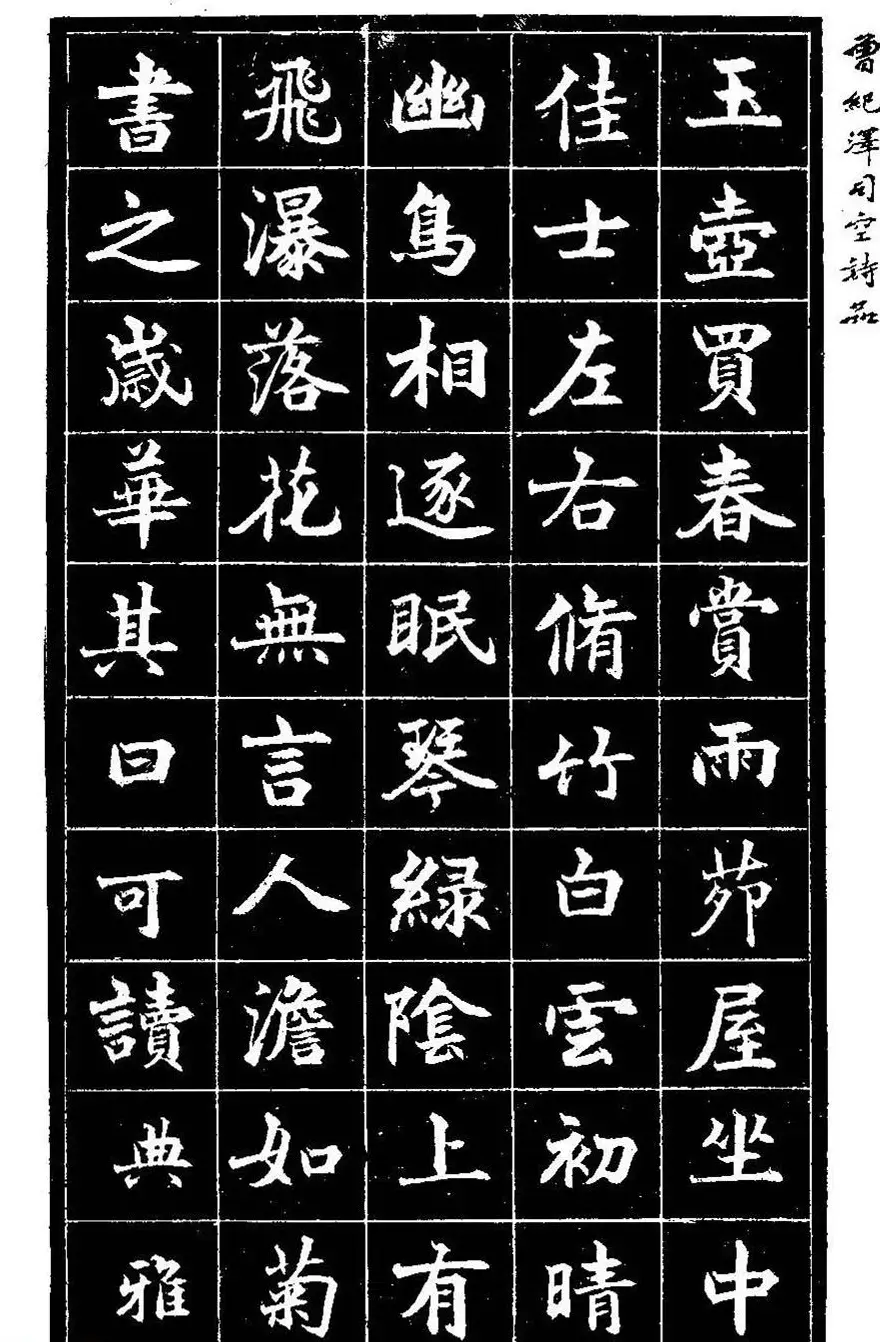 曾紀澤司空詩品
玉壺買春賞雨茆屋坐中
佳士左右脩竹白雲初晴
幽鳥相逐眠琴綠陰上有
飛瀑落花無言人澹如菊
書之歲華其曰可讀典雅